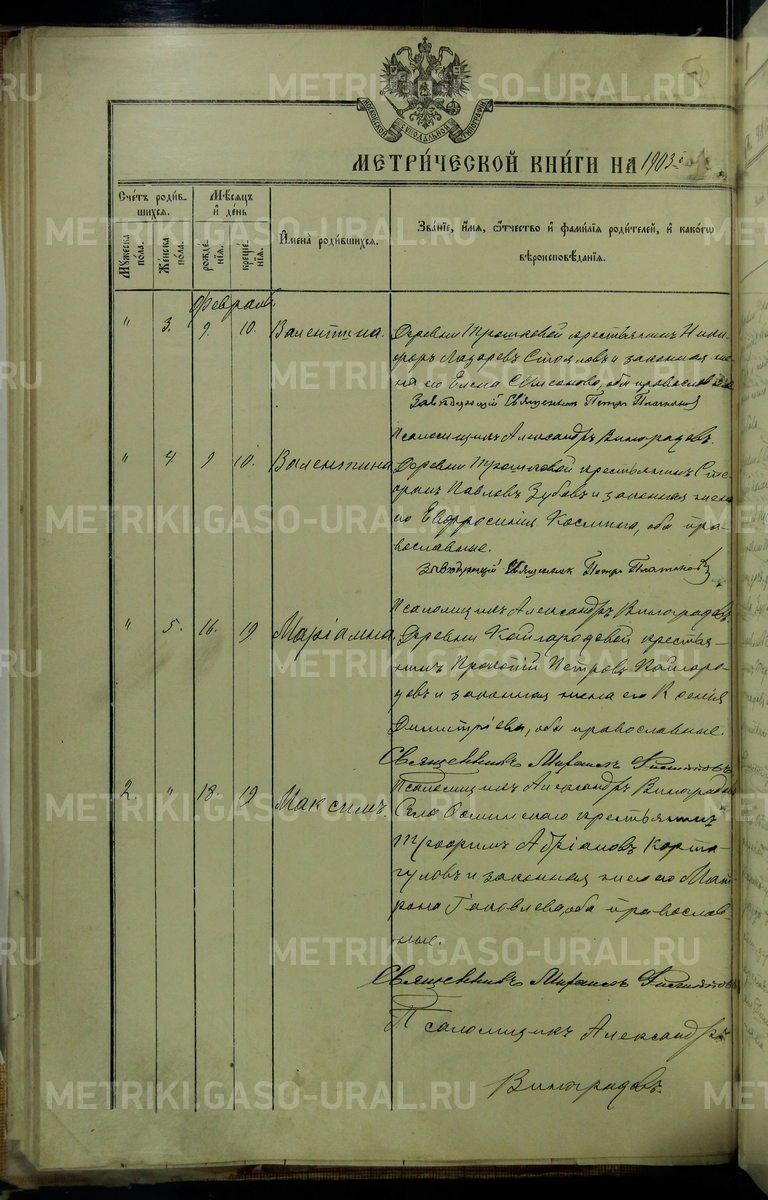 МЕТРИ́ЧЕСКОЙ КНИ́ГИ НА 1903
Сче́тъ роди́в-
шихся.
Мѣ́сяцъ
и҆ де́нь
Мꙋ́жеска
по́ла.
Же́нска
по́ла.
рожде́-
нїя.
креще́-
нїя.
И҆мена̀ роди́вшихся.
Зва́нїе, и҆́мя, ѻ҆́тчество и҆ фами́лїя роди́телей, и҆ како́гѡ
вѣроисповѣ́данїя.
Февраль.
" 3. 9. 10. Валентина.
Деревни Трошковой крестьянинъ Ники-
форъ Лазаревъ и законная же-
на его Елена оба православные
Завѣдующій Священникъ Петръ Платоновъ
Псаломщикъ Александръ Виноградовъ.
" 4 9 10. Валентина
Деревни Трошковой крестьянинъ Сте-
фанъ Павловъ Зубовъ и законная жена
его Евфросинія Космина, оба пра-
вославные.
Завѣдующій Священник Петръ Платоновъ
Псаломщикъ Александръ Виноградовъ.
" 5. 16. 19 Маріамна
Деревни Кайгородовой крестья-
нинъ Прокопій Петровъ Кайгоро-
довъ и законная жена его Ксенія
Димитріева, оба православные.
Священникъ
Псаломщикъ Александръ Виноградовъ
2. " 18. 19 Максимъ.
Села крестьянинъ
Трофимъ Адріановъ
и законная жена его Мат-
рона Іаковлева, оба православ-
ные.
Священникъ
Псаломщикъ Александръ
Виноградовъ.
METRIKI.GASO-URAL.RU